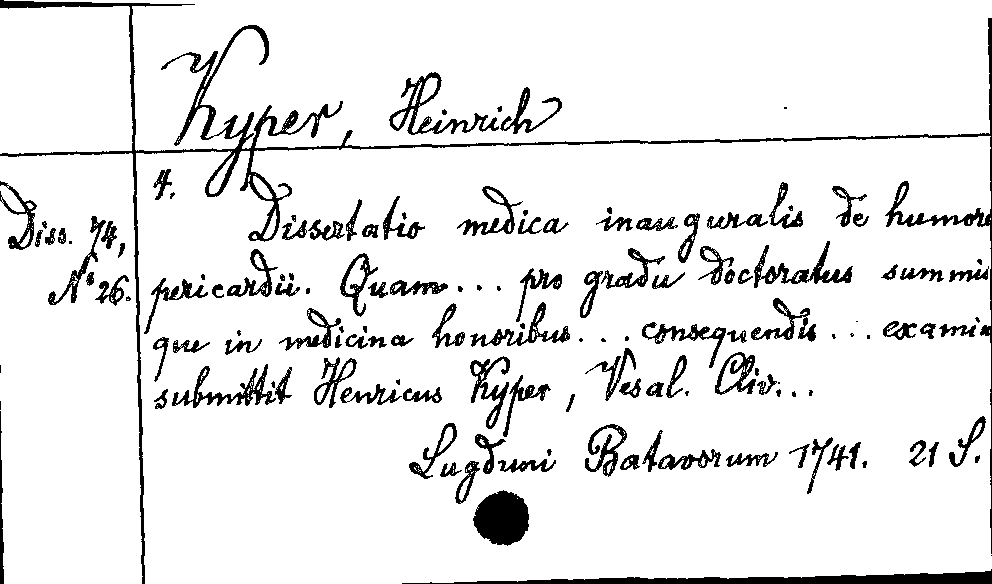 Kyper, Heinrich
4.
Diss. 74,
No 26.
Dissertatio medica inauguralis de humore
pericardii. Quam... pro gradu doctoratus summis
que in medicina honoribus... consequendis... examin
submittit Henricus Kyper, Vesal. Cliv...
Lugduni Batavorum 1741. 21 S.